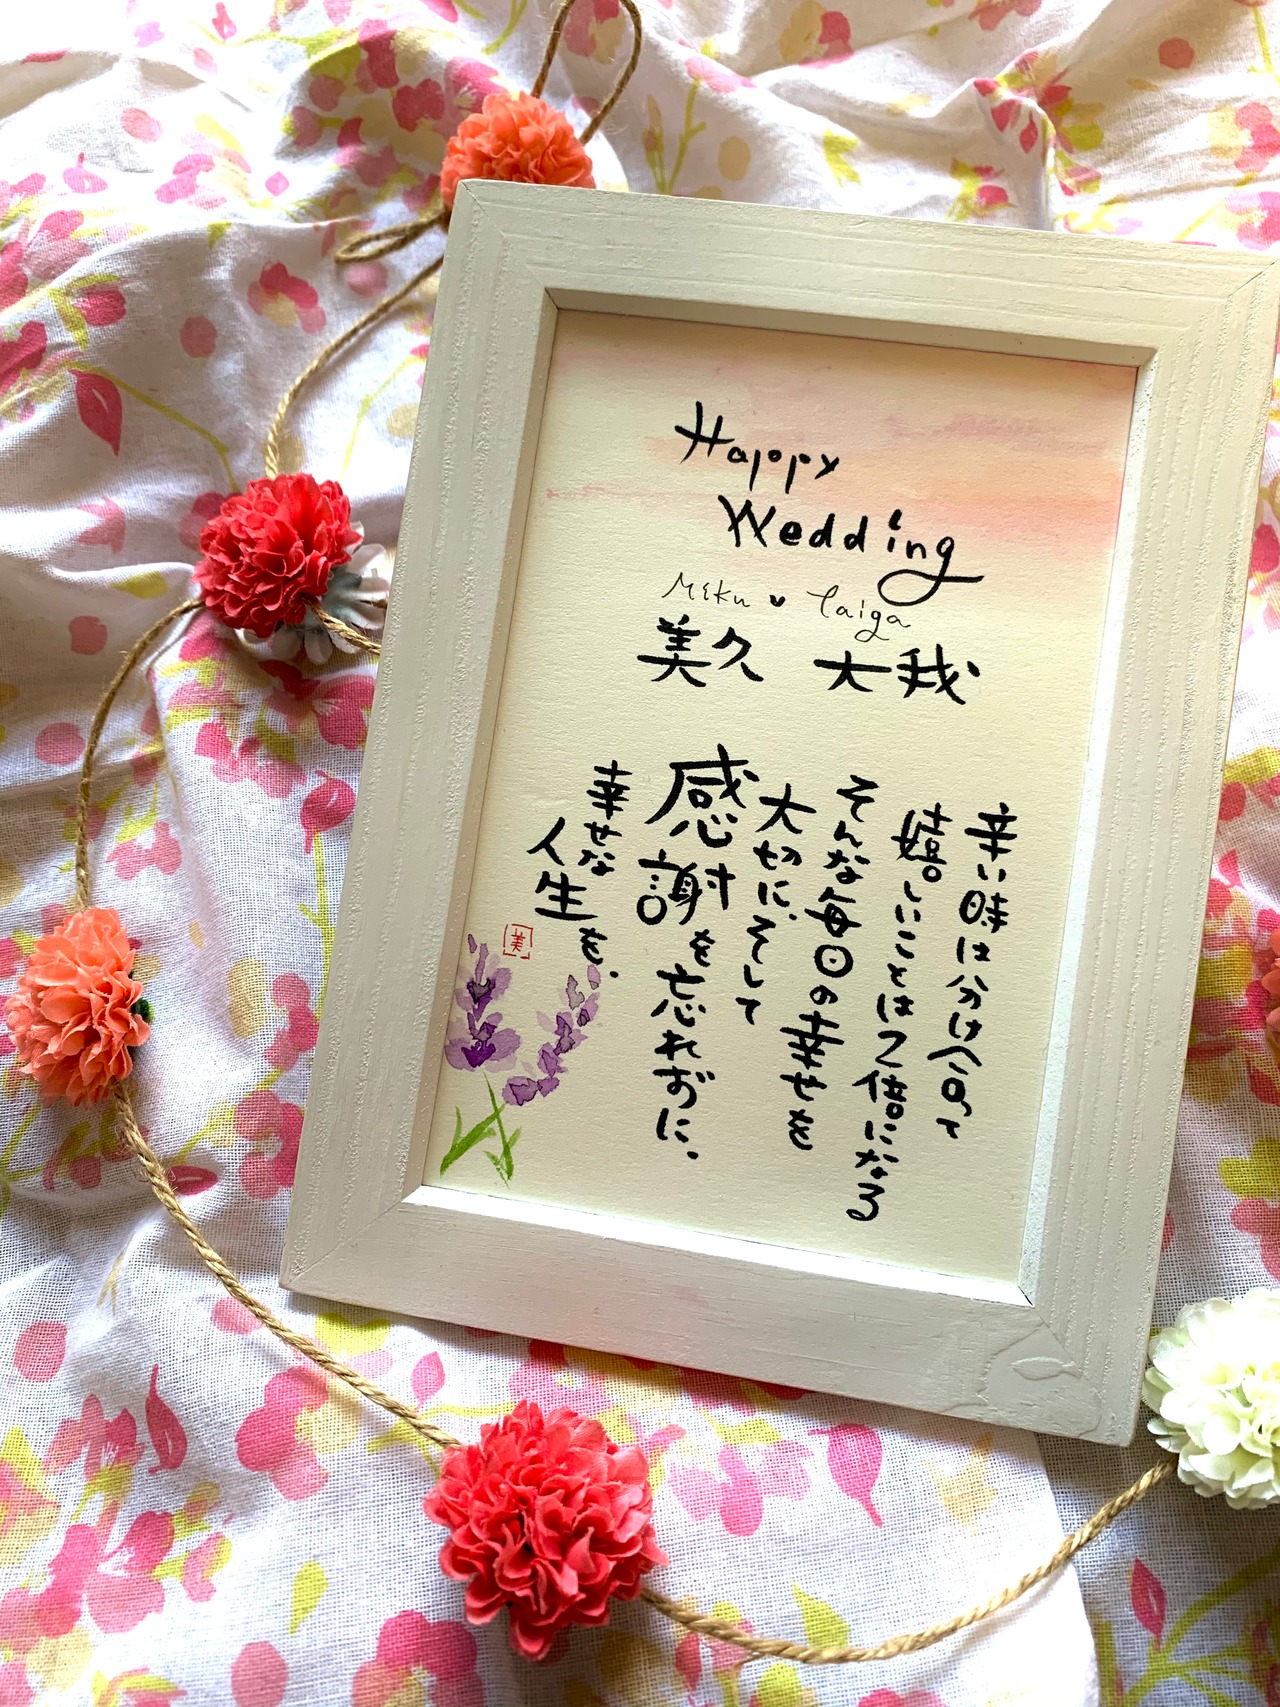 Happy
Wedding
Miku ♥ Taiga
美久 大我
辛い時は分け合って
嬉しいことは2倍になる
そんな毎日の幸せを
大切に、そして
感謝を忘れずに、
幸せな
人生を、
美